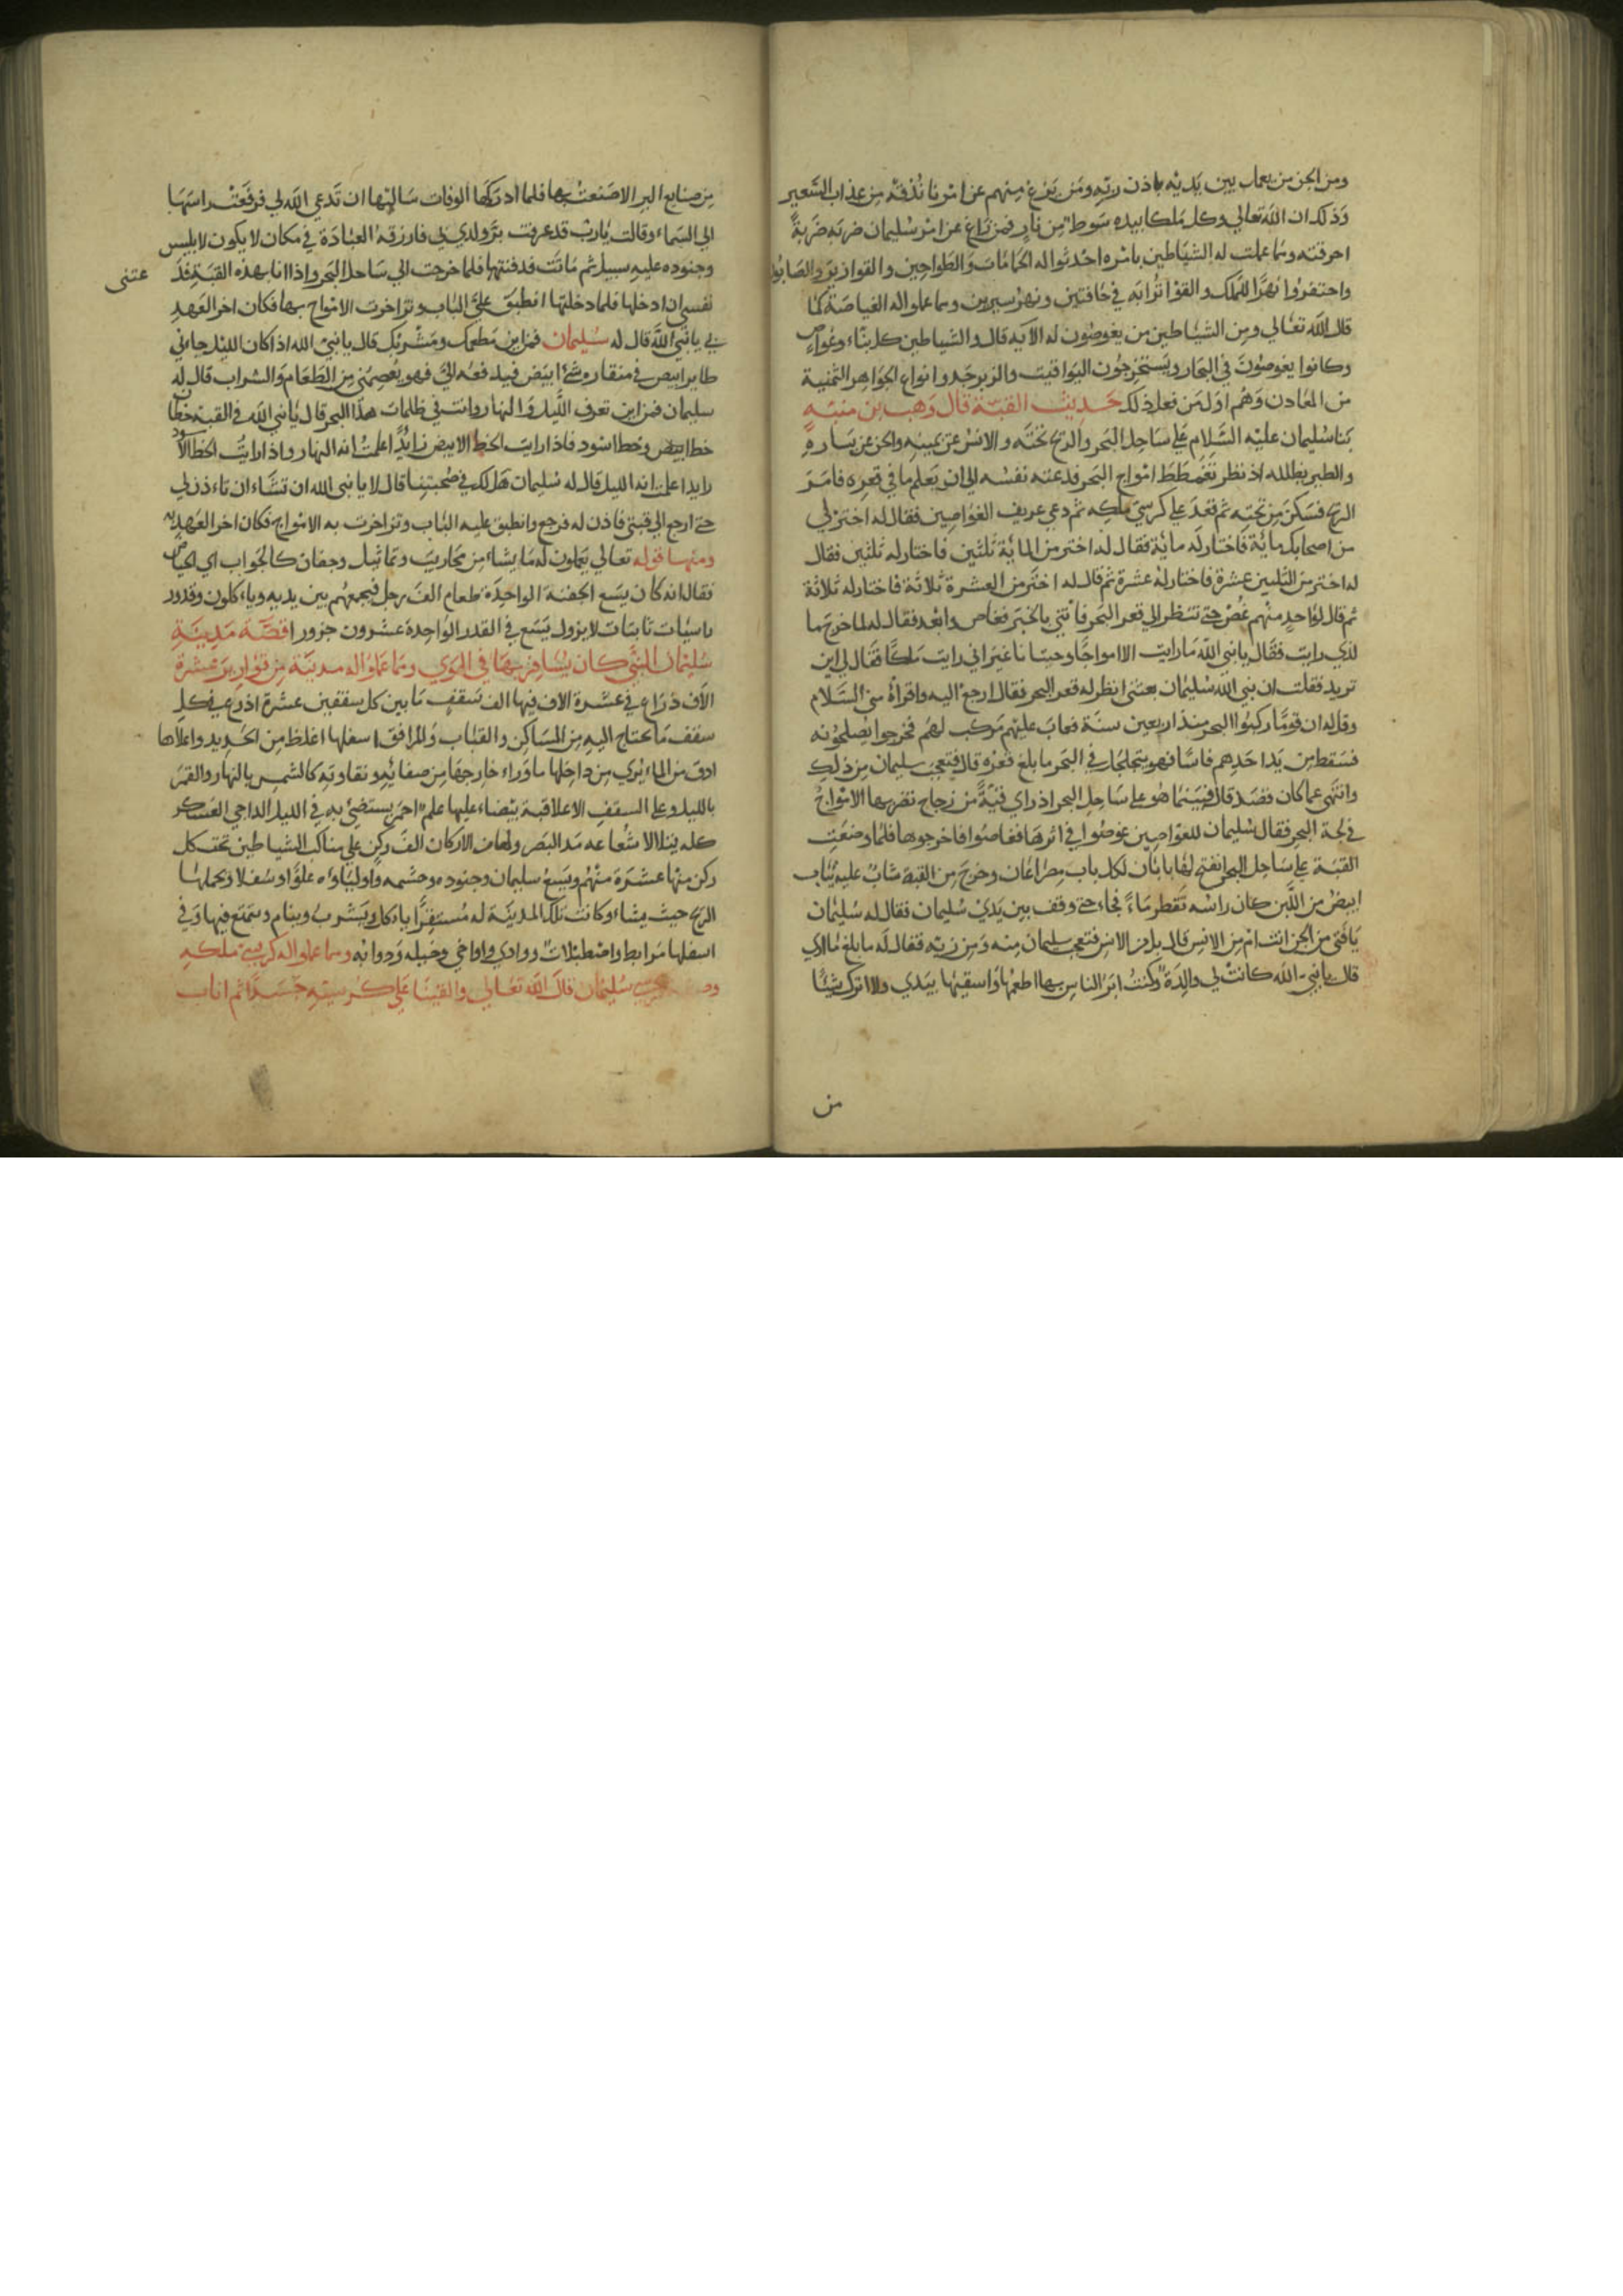 ومن الجن من يعمل بين يديه باذن ربه ومن يزغ منهم عن امرنا نذقه من عذاب السعير
وذلك ان الله تعالي وكل ملكا بيده سوط من نار فمن زاغ عن امر سليمان ضربه ضربة
احرقته ومما عملت له الشياطين بامره احدثوا له الحمامات والطواحين والقوارير والصابون
واحتفروا نهر الملك والقوا ترابه في حافتين ونهر سيرين ومما عملوا له الغياصة كما
قال الله تعالي ومن الشياطين من يغوصون له الايه قال والشياطين كل بناء وغواص
وكانوا يغوصون في البحار ويستخرجون اليواقيت والزبرجد وانواع الجواهر الثمنية
من المعادن وهم اول من فعل ذلك حديث القبة قال وهب بن منبه
بنا سليمان عليه السلام علي ساحل البحر والريح تحته والانس عن يمينه والجن عن يساره
والطير يظلله اذ نظر تغمطط امواج البحر فدعته نفسه الي ان يعلم ما في قعره فامر
الريح فسكن من تحته ثم قعد علي كرسي ملكه ثم دعي عريف الغواصين فقال له اختر لي
من اصحابك ماية فاختار له ماية فقال له اختر من الماية ثلثين فاختار له ثلثين فقال
له اختر من الثلثين عشرة فاختار له عشرة ثم قال له اختر من العشرة ثلاثة فاختار له ثلاثة
ثم قال لواحد منهم غص حتي تنظر الي قعر البحر فاتني بالخبر فغاص وابعد فقال له لما خرج ما
لذي رايت فقال يا نبي الله ما رايت الا امواجا وحيتانا غير اني رايت ملكا فقال لي اين
تريد فقلت ان نبي الله سليمان بعثني انظر له قعر البحر فقال ارجع اليه واقراه مني السلام
وقل له ان قوما ركبوا البحر منذ اربعين سنة فعاب عليهم مركب لهم فخرجوا يصلحونه
فسقط من يد احدهم فاسا فهو يتجلجل في البحر ما بلغ قعره قال فتعجب سليمان من ذلك
وانتهي عما كان قصد قال فبينما هو علي ساحل البحر اذ راي قبة من زجاج تضربها الامواج
في لجة البحر فقال سليمان للغواصين غوصوا في اثرها فغاصوا فاخرجوها فلما وضعت
القبة علي ساحل البحر انفتح لها بابان لكل باب مصراعان وخرج من القبة شاب عليه ثياب
ابيض من اللبن كان راسه تقطر ماء فجاء حتي وقف بين يدي سليمان فقال له سليمان
يا فتي من الجن انت ام من الانس قال بل من الانس فتعجب سليمان منه ومن زيه فقال له ما بلغ ما اري
قال يا نبي الله كانت لي والدة وكنت ابر الناس بها اطعمها واسقيها بيدي ولا اترك شيئا
من
من صنايع البر الا صنعت بها فلما ادركها الوفات سالتها ان تدعي الله لي فرفعت راسها
الي السماء وقالت يا رب قد عرفت بر ولدي لي فارزقه العبادة في مكان لا يكون لابليس
وجنوده عليه سبيل ثم ماتت فدفنتها فلما خرجت الي ساحل البحر واذا انا بهذه القبة فد
عتنى
نفسي ان ادخلها فلما دخلتها انطبق علي الباب وتزاخرت الامواج بها فكان اخر العهد
بي يا نبي الله قال له سليمان فمن اين مطعمك ومشربك قال يا نبي الله اذا كان الليل جاءني
طاير ابيض في منقاره شئ ابيض فيدفعه الي فهو يعصمني من الطعام والشراب قال له
سليمان فمن اين تعرف الليل والنهار وانت في ظلمات هذا البحر قال يا نبي الله في القبة خطان
خطا ابيض وخطا اسود فاذا رايت الخط الابيض زايدا علمت انه النهار واذا رايت الخط الاسود
زايدا علمت انه الليل قال له سليمان هل لك في صحبتنا قال لا يا نبي الله ان تشاء ان تاءذن لي
حتي ارجع الي قبتي فاذن له فرجع وانطبق عليه الباب وتزاخرت به الامواج فكان اخر العهد به
ومنها قوله تعالي يعملون له ما يشاء من محاريب وتماثيل وجفان كالجواب اي الحياض
فقال انه كان يسع الجفنة الواحدة طعام الف رجل فيجمعهم بين يديه وياءكلون وقدور
راسيات ثابتات لا يزول يسع في القدر الواحدة عشرون جزورا قصة مدينة
سليمان النبي كان يسافر بها في الهوي ومما عملوا له مدينة من قوارير عشرة
الاف ذراع في عشرة الاف فيها الف سقف ما بين كل سقفين عشرة اذرع في كل
سقف ما يحتاج اليه من المساكن والقباب والمرافق اسفلها اغلظ من الحديد واعلاها
ادق من الماء يري من داخلها ما وراء خارجها من صفائه ونقاوته كالشمس بالنهار والقمر
بالليل وعلي السقف الاعلا قبة بيضاء عليها علم احمر يستضئ به في الليل الداجي العسكر
كله يتلالا شعاعه مد البصر ولها من الاركان الف ركن علي مناكب الشياطين تحت كل
ركن منها عشرة منهم ويسع سليمان وجنوده وحشمه واولياواه علوا وسفلا وتحملها
الريح حيث يشاء وكانت تلك المدينة له مستقرا ياءكل ويشرب وينام ويتمتع فيها وفي
اسفلها مرابط واصطبلات واواخي وخيله ودوابه ومما عملوا له كرسي ملكه
سليمان قال الله تعالي والقينا علي كرسيه جسدا ثم اناب